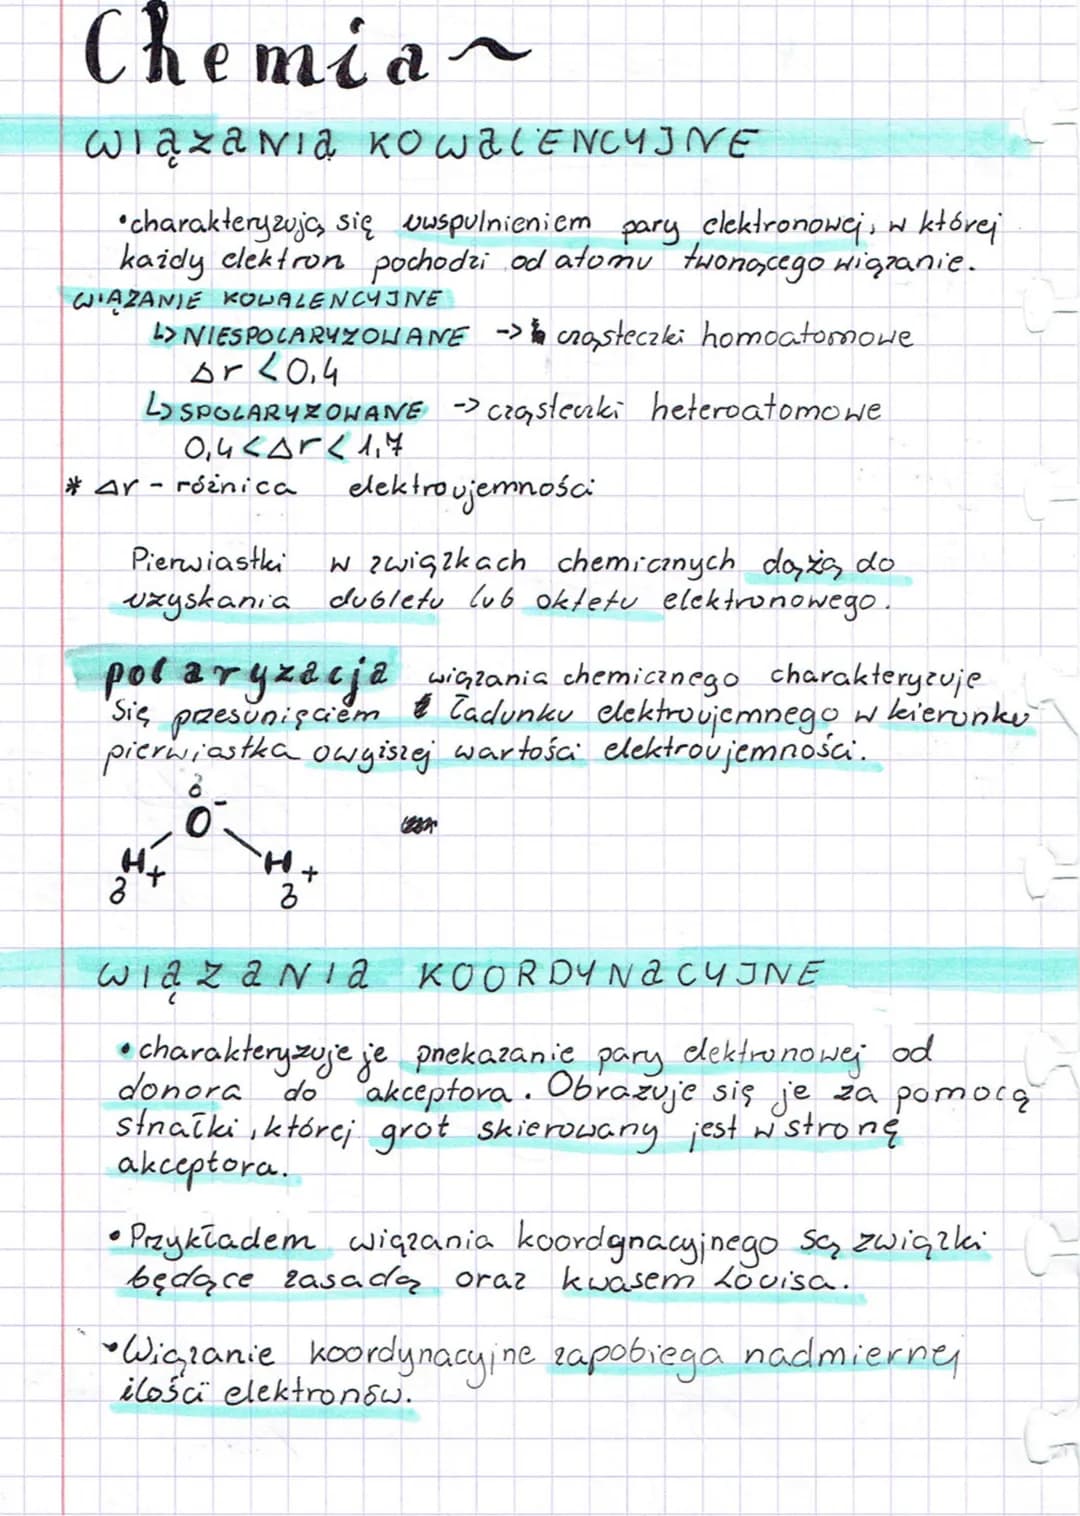 Chemia~
WIĄZANIA KOWALENCYJNE
•charakteryzują się uwspulnieniem pary elektronowej, w której
każdy elektron pochodzi od atomu tworzącego wiązanie.
WIĄZANIE KOWALENCYJNE
↳ NIESPOLARYZOWANE -> cząsteczki homoatomowe
Δr < 0,4
↳ SPOLARYZOWANE -> cząsteczki heteroatomowe
0,4 < Δr < 1,7
* Δr - różnica elektroujemności
Pierwiastki w związkach chemicznych dążą do
uzyskania dubletu lub oktetu elektronowego.
polaryzacja wiązania chemicznego charakteryzuje
się przesunięciem ładunku elektroujemnego w kierunku
pierwiastka o wyższej wartości elektroujemności.
δ
O -
H + H +
δ δ
WIĄZANIA KOORDYNACYJNE
• charakteryzuje je przekazanie pary elektronowej od
donora do akceptora. Obrazuje się je za pomocą
strzałki, której grot skierowany jest w stronę
akceptora.
• Przykładem wiązania koordynacyjnego są związki
będące zasadą oraz kwasem Louisa.
• Wiązanie koordynacyjne zapobiega nadmiernej
ilości elektronów.